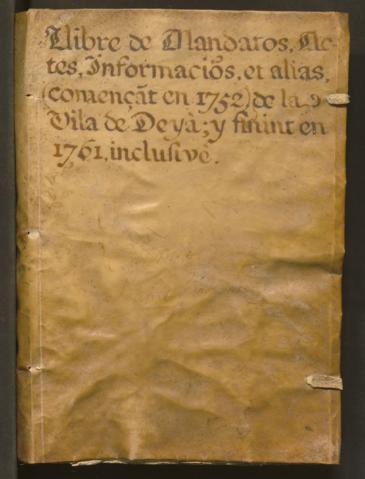 Llibre de Mandatos, Ac-
tes, Informaciõs, et alias,
(començãt en 1752) de la
Vila de Deyà; y finint en
1761. inclusivè.